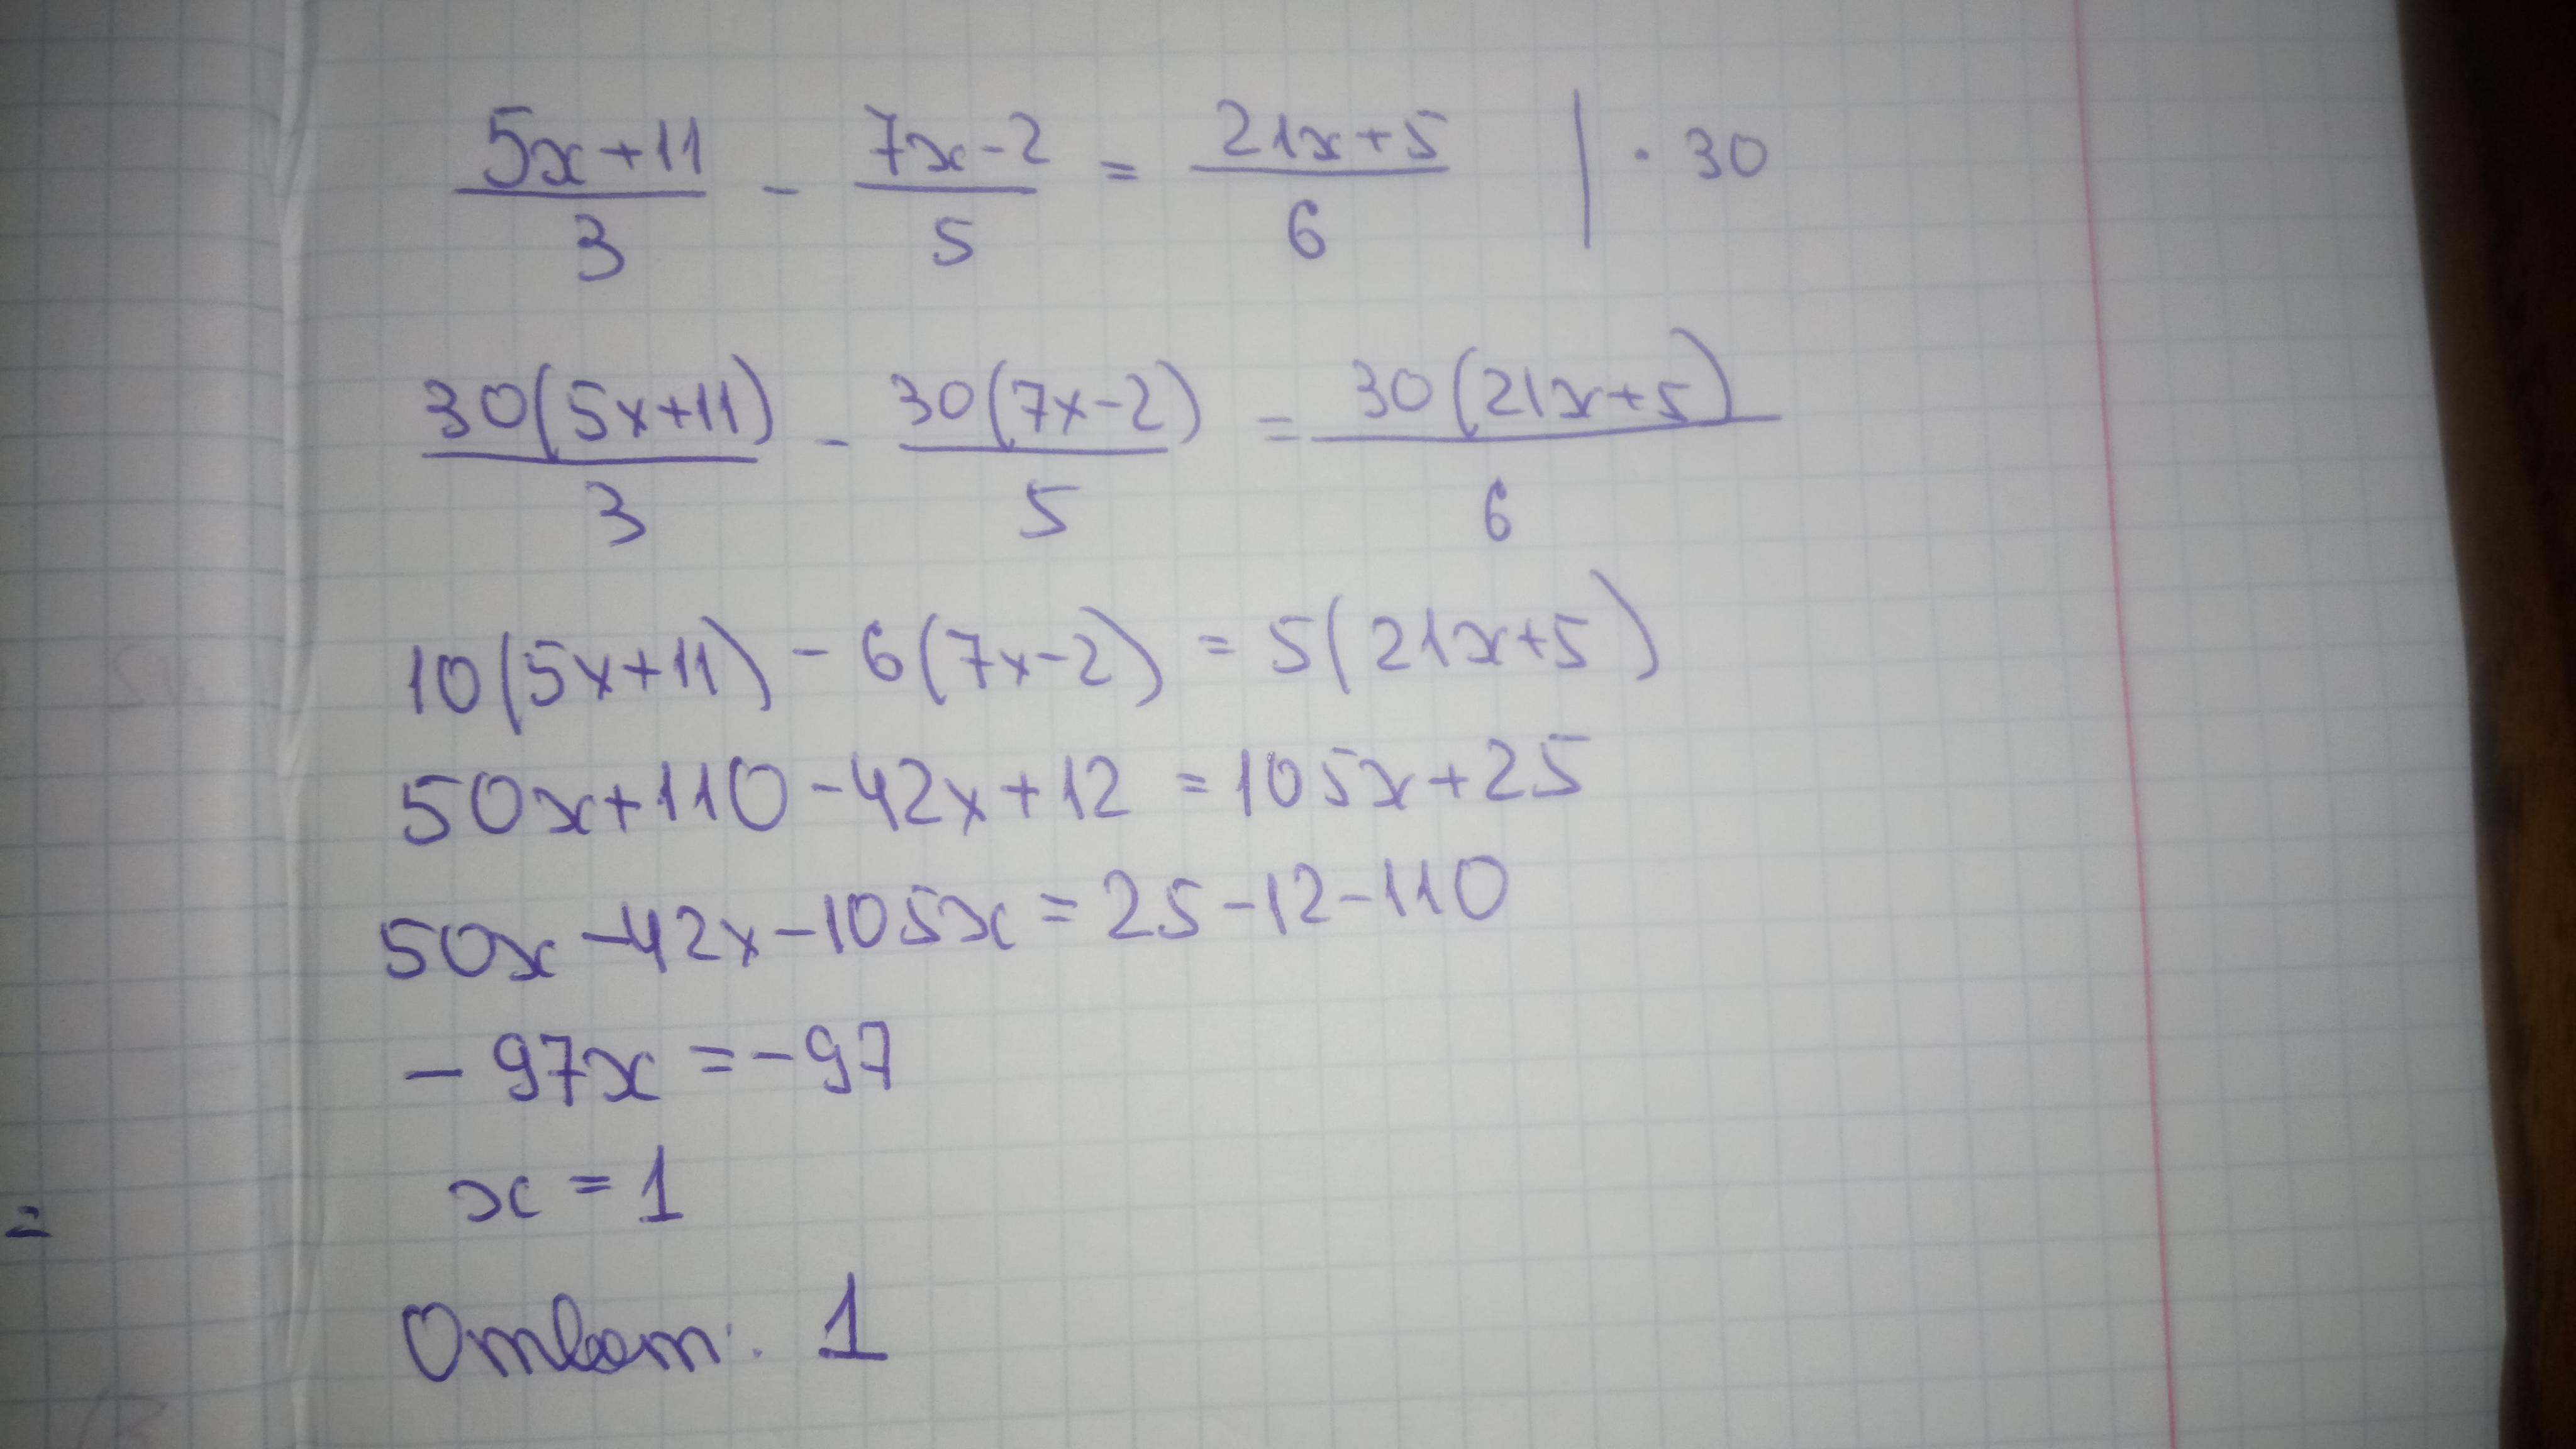 (5x+11)/3 - (7x-2)/5 = (21x+5)/6 | · 30
30(5x+11)/3 - 30(7x-2)/5 = 30(21x+5)/6
10(5x+11) - 6(7x-2) = 5(21x+5)
50x+110-42x+12 = 105x+25
50x-42x-105x = 25-12-110
-97x = -97
x = 1
=
Ответ: 1